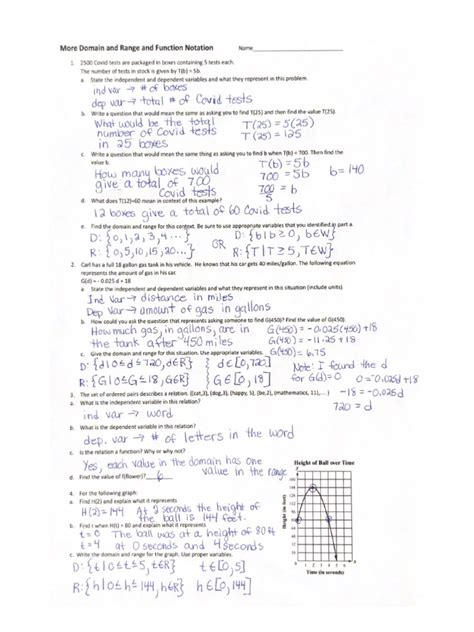 More Domain and Range and Function Notation Name
1. 2500 Covid tests are packaged in boxes containing 5 tests each.
The number of tests in stock is given by T(b) = 5b.
a. State the independent and dependent variables and what they represent in this problem.
ind var → # of boxes
dep var → total # of Covid tests
b. Write a question that would mean the same as asking you to find T(25) and then find the value T(25).
What would be the total T(25) = 5(25)
number of Covid tests T(25) = 125
in 25 boxes
c. Write a question that would mean the same thing as asking you to find b when T(b) = 700. Then find the
value b.
T(b) = 5b
How many boxes would 700 = 5b b=140
give a total of 700 700 = b
Covid tests 5
d. What does T(12)=60 mean in context of this example?
12 boxes give a total of 60 Covid tests
e. Find the domain and range for this context. Be sure to use appropriate variables that you identified in part a.
D: {0,1,2,3,4...} D: {b|b≥0, bϵW}
OR
R: {0,5,10,15,20...} R: {T|T≥5, TϵW}
2. Carl has a full 18 gallon gas tank in his vehicle. He knows that his car gets 40 miles/gallon. The following equation
represents the amount of gas in his car.
G(d) = - 0.025 d + 18
a. State the independent and dependent variables and what they represent in this situation (include units).
Ind Var → distance in miles
Dep Var → amount of gas in gallons
b. How could you ask the question that represents asking someone to find G(450)? Find the value of G(450).
How much gas, in gallons, are in G(450) = -0.025(450)+18
the tank after 450 miles G(450) = -11.25 + 18
c. Give the domain and range for this situation. Use appropriate variables. G(450) = 6.75
D: {d|0≤d≤720, dϵR} dϵ[0,720] Note: I found the d
R: {G|0≤G≤18, GϵR} Gϵ[0,18] for G(d)=0 0=-0.025d+18
3. The set of ordered pairs describes a relation. {(cat,3), (dog,3), (happy, 5), (be,2), (mathematics, 11),...} -18 = -0.025d
a. What is the independent variable in this relation? 720 = d
ind var → word
b. What is the dependent variable in this relation?
dep. var → # of letters in the word
c. Is the relation a function? Why or why not?
Yes, each value in the domain has one
value in the range
d. Find the value of f(flower)? 6
Height of Ball over Time
4. For the following graph:
a. Find H(2) and explain what it represents
H(2) = 144 At 2 seconds the height of
the ball is 144 feet.
b. Find t when H(t) = 80 and explain what it represents
t=0 The ball was at a height of 80 ft
t=4 at 0 seconds and 4 seconds
c. Write the domain and range for the graph. Use proper variables.
D: {t|0≤t≤5, tϵR} tϵ[0,5]
R: {h|0≤h≤144, hϵR} hϵ[0,144]
Height (in feet)
1 2 3 4 5
Time (in seconds)